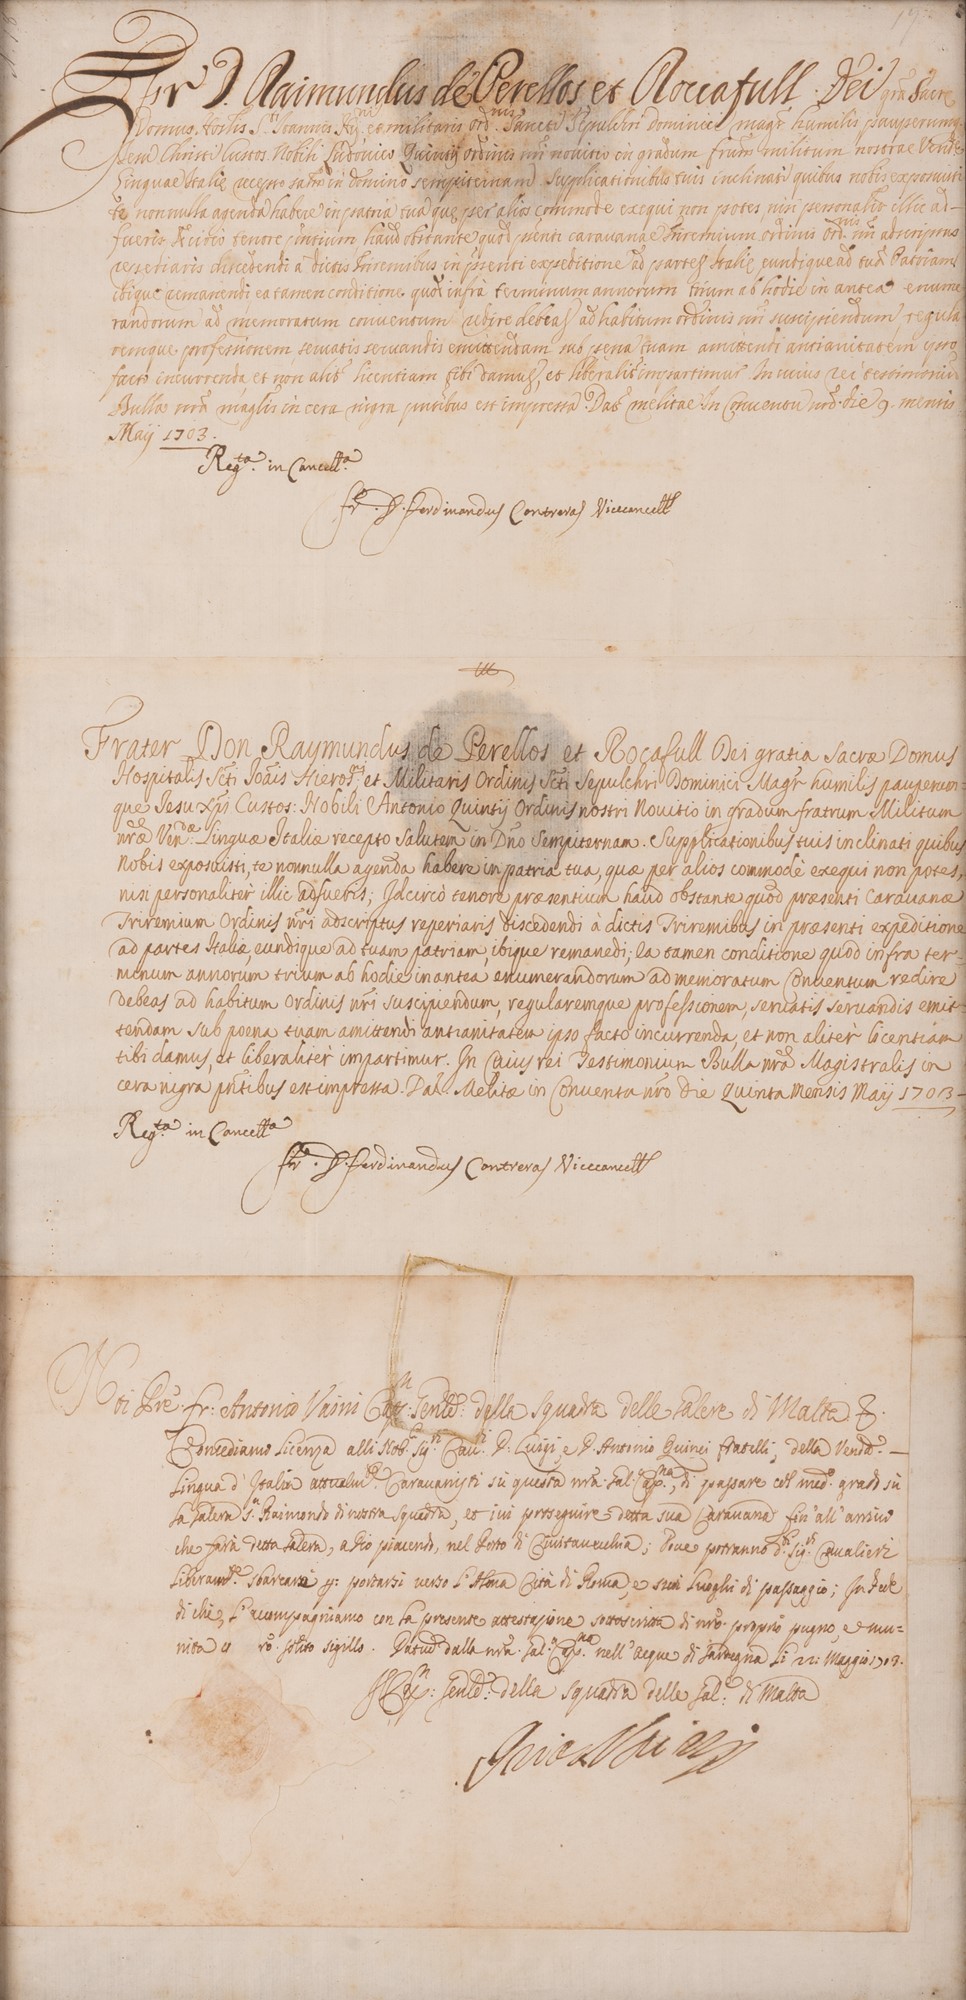 Fr. D. Raimundus de Perellos et Roccafull Dei gra Sacre
Domus Hosplis S.ti Joannis et militaris Ord.nis Sancti Sepulcri Dominici magr humilis pauperumq
Jesu Christi Custos Nobili Ludovico Quintij ordinis nri novitio in gradum frum militum nostrae Vende
Linguae Italie recepto salm in Domino sempiternam. Supplicationibus tuis inclinati quibus nobis exposuisti
te nonnulla agenda habere in patria tua que per alios commode exequi non potes nisi personalir illic ad-
fueris Iccirco tenore pntium haud obstante quod pnti caravanae Triremium ordinis nri adscriptus
reperiaris discedendi a dictis Triremibus in pnti expeditione ad partes Italie eundique ad tua Patriam
ibique remanendi ea tamen conditione quod infra terminum annorum trium ab hodie in antea enume
randorum ad memoratum conventum redire debeas ad habitum ordinis nri suscipiendum regula
remque professionem servatis servandis emittendam sub pena tuam amittendi antianitatem ipso
facto incurrenda et non alitr licentiam tibi damus, et liberalitr impartimur. In cuius rei testimoniu
Bulla nra maglis in cera nigra pntibus est impressa. Dat melitae in Conventu nro die 9 mensis
Maij 1703.
Reg.ta in Cancell.a
Fr. D. Ferdinandus Contreras Vicecancell
Frater Don Raymundus de Perellos et Rocafull Dei gratia Sacrae Domus
Hospitalis Scti Joais Hieros, et Militaris Ordinis Scti Sepulchri Dominici Magr humilis pauperum-
que Jesu Xpi Custos: Nobili Antonio Quintij Ordinis nostri Novitio in gradum fratrum Militum
nrae Vendae Linguae Italiae recepto Salutem in Dno Sempiternam. Supplicationibus tuis inclinati quibus
Nobis exposuisti, te nonnulla agenda habere in patria tua, quae per alios commodè exequi non potes,
nisi personalitèr illic adfueris; Idcircò tenore praesentium haud obstante quod praesenti Caravanae
Triremium Ordinis nri adscriptus reperiaris discedendi à dictis Triremibus in praesenti expeditione
ad partes Italiae, eundique ad tuam patriam, ibique remanedi; Ea tamen conditione quod infra ter-
minum annorum trium ab hodie inantea enumerandorum ad memoratum Conventum redire
debeas ad habitum Ordinis nri suscipiendum, regularemque professionem, servatis servandis emit-
tendam sub poena tuam amittendi antianitatem ipso facto incurrenda, et non alitèr licentiam
tibi damus, et liberalitèr impartimur. In Cuius rei Testimonium Bulla nra Magistralis in
cera nigra pntibus est impressa. Dat. Melitae in Conventu nro Die Quinta Mensis Maij 1703-
Reg.ta in Cancell.a
Fr. D. Ferdinandus Contreras Vicecancell
Noi Pre fr: Antonio Vaini Capn Genle: della Squadra delle Galere di Malta &.
Concediamo Licenza alli Nob. Sig.ri Cav.ri D: Luigi, e D. Antonio Quinci fratelli, della Vend.
Lingua d'Italia attualm.te Caravanisti su questa nra Gal. Cap.na, di passare col med.o grado su
la Galera S. Raimondo di nostra Squadra, et ivi proseguire detta sua Caravana fin'all'arrivo
che farà detta Galera, a Dio piacendo, nel Porto di Civitavecchia; Dove potranno d.ti Sig.ri Cavalieri
Liberam.te sbarcarsi p: portarsi verso l'Alma Città di Roma, e suoi luoghi di passaggio; In fede
di che, l'accompagniamo con la presente attestazione sottoscritta di nro proprio pugno, e mu-
nita ro solito sigillo. Data dalla nra Gal. Cap.na nell'acque di Sardegna li 22: Maggio 1703.
Il Cap.n: Genle: della Squadra delle Gal: di Malta